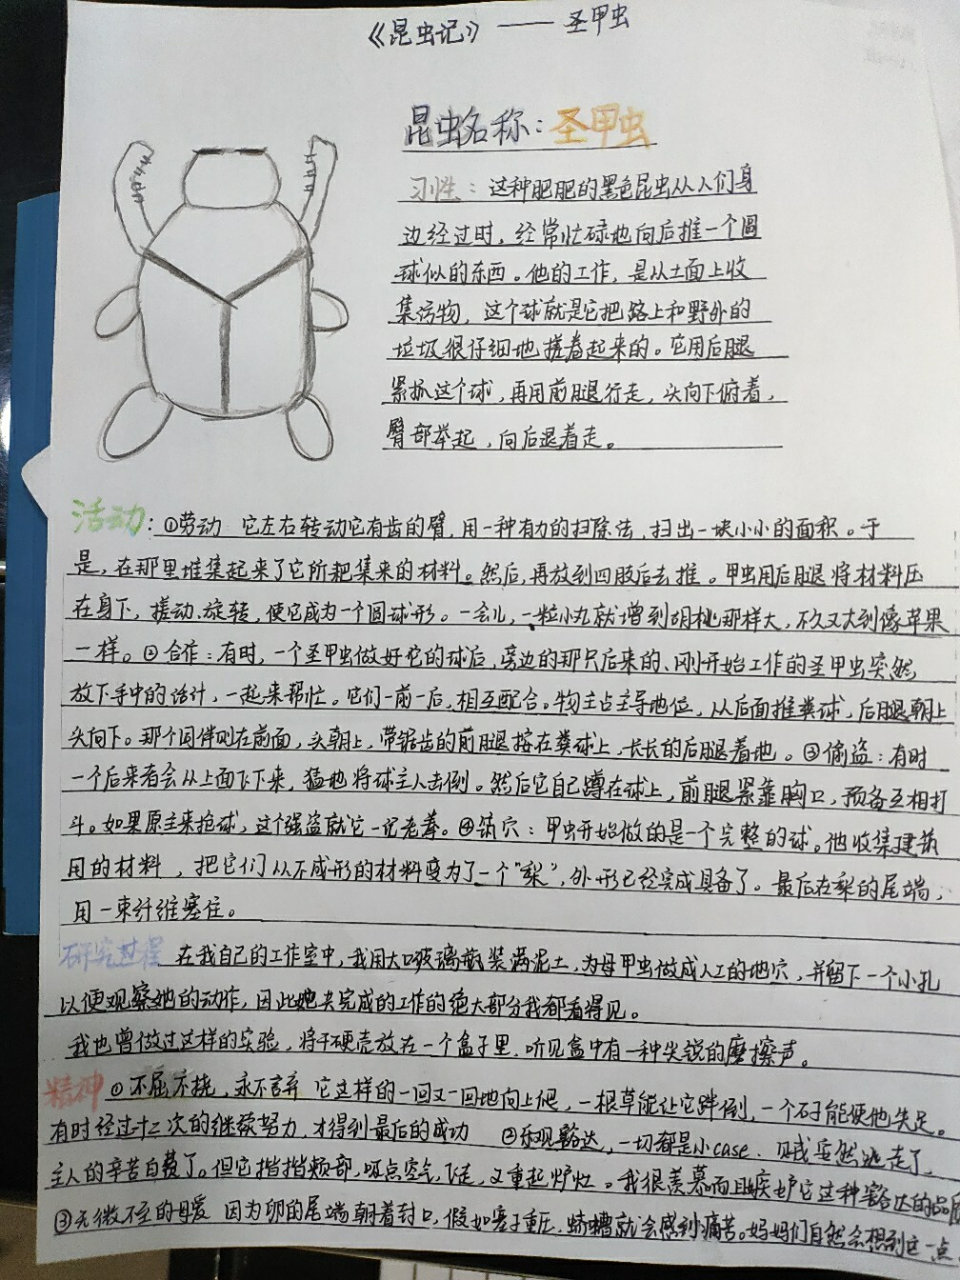 《昆虫记》—— 圣甲虫
昆虫名称：圣甲虫
习性：这种肥肥的黑色昆虫从人们身
边经过时，经常忙碌地向后推一个圆
球似的东西。他的工作，是从土面上收
集污物，这个球就是它把路上和野外的
垃圾很仔细地搓卷起来的。它用后腿
紧抓这个球，再用前腿行走，头向下俯着，
臀部举起，向后退着走。
活动：①劳动 它左右转动它有齿的臂，用一种有力的扫除法，扫出一块小小的面积。于
是，在那里堆集起来了它所耙集来的材料。然后，再放到四股后去推。甲虫用后腿将材料压
在身下，搓动、旋转，使它成为一个圆球形。一会儿，一粒小丸就增到胡桃那样大，不久又大到像苹果
一样。②合作：有时，一个圣甲虫做好它的球后，旁边的那只后来的、刚开始工作的圣甲虫突然
放下手中的活计，一起来帮忙。它们一前一后，相互配合。物主占主导地位，从后面推粪球，后腿朝上
头向下。那个同伴则在前面，头朝上，带锯齿的前腿按在粪球上，长长的后腿着地。③偷盗：有时
一个后来者会从上面飞下来，猛地将球主人击倒。然后它自己蹲在球上，前腿紧靠胸口，预备互相打
斗。如果原主来抢球，这个强盗就它一记老拳。④筑穴：甲虫开始做的是一个完整的球。他收集建筑
用的材料，把它们从不成形的材料变为了一个“梨”，外形已经完成具备了。最后在梨的尾端，
用一束纤维塞住。
研究过程 在我自己的工作室中，我用大口玻璃瓶装满泥土，为母甲虫做成人工的地穴，并留下一个小孔
以便观察她的动作，因此她去完成的工作的绝大部分我都看得见。
我也曾做过这样的实验，将干硬壳放在一个盒子里，听见盒中有一种尖锐的磨擦声。
精神 ①不屈不挠，永不言弃 它这样的一回又一回地向上爬，一根草能让它跘倒，一个石子能使他失足。
有时经过十二次的继续努力，才得到最后的成功 ②乐观豁达，一切都是小case．贼虽然逃走了，
主人的辛苦白费了。但它揩揩颊部，吸点空气，飞走，又重起炉灶。我很羡慕而且嫉妒它这种豁达的品质
③无微不至的母爱 因为卵的尾端朝着封口，假如塞子重压，蛴螬就会感到痛苦。妈妈们自然会想到这一点